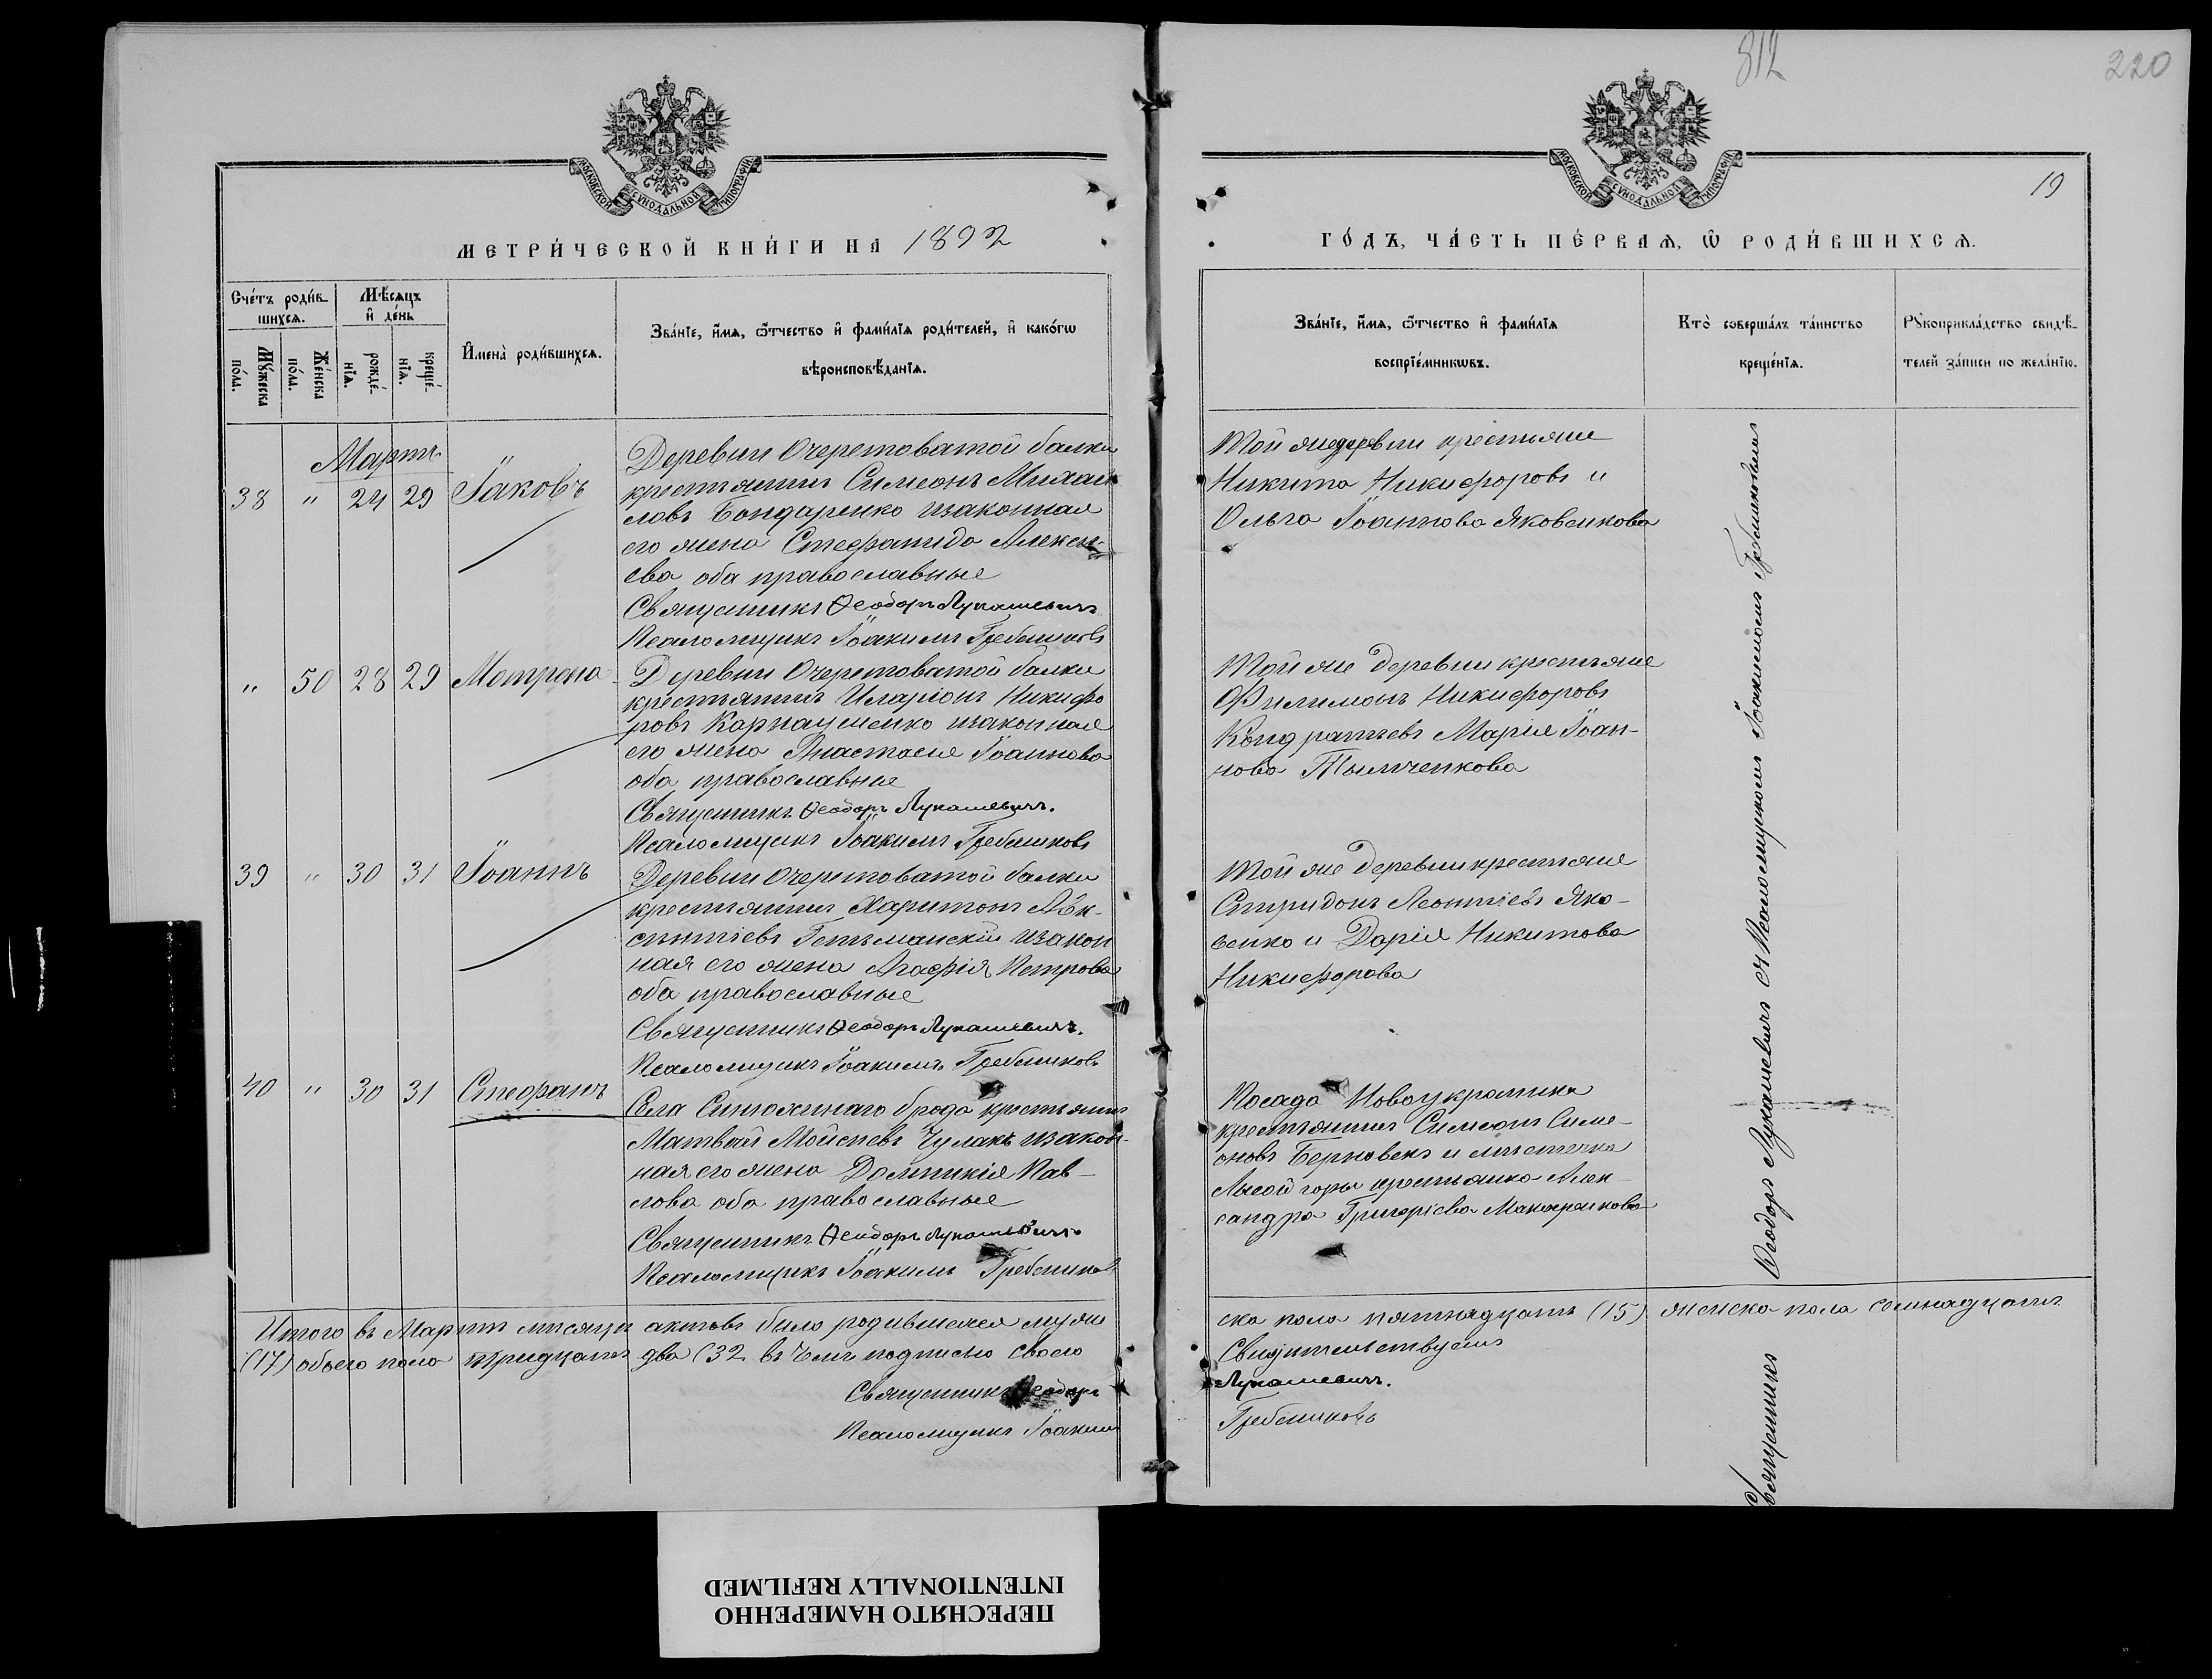 812
220
19
МОСКОВСКОЙ СѴНОДАЛЬНОЙ ТИПОГРАФІИ
МОСКОВСКОЙ СѴНОДАЛЬНОЙ ТИПОГРАФІИ
МЕТРИ́ЧЕСКОЙ КНИ́ГИ НА 1892
ГО́ДЪ, ЧА́СТЬ ПЕ́РВАѦ, Ѡ РОДИ́ВШИХСѦ.
Сче́тъ роди́в-
шихсѧ.
Мѣ́сѧцъ
и҆ де́нь
Мꙋ́жеска
по́ла.
Же́нска
по́ла.
рожде́-
нїѧ.
креще́-
нїѧ.
И҆мена̀ роди́вшихсѧ.
Зва́нїе, и҆́мѧ, ѻ҆́тчество и҆ фами́лїѧ роди́телей, и҆ како́гѡ
вѣроисповѣ́данїѧ.
Зва́нїе, и҆́мѧ, ѻ҆́тчество и҆ фами́лїѧ
воспрїе́мникѡвъ.
Кто̀ соверша́лъ та́инство
креще́нїѧ.
Рꙋкоприкла́дство свидѣ́-
телей за́писи по жела́нїю.
Мартъ
38 " 24 29 Іаковъ
Деревни Очеретоватой балки
крестьянинъ Симеонъ Михаи
ловъ Бондаренко изаконная
его жена Стефанида Алексѣ-
ева оба православные
Священникъ Ѳеодоръ Лукашевичъ
Псаломщикъ Іоакимъ Гребенниковъ
Той же деревни крестьяне
Никита Никифоровъ и
Ольга Іоаннова Яковенкова
" 50 28 29 Матрона
Деревни Очеретоватой балки
крестьянинъ Иларіонъ Никифо
ровъ Карнаушенко изаконная
его жена Анастасія Іоаннова
оба православные
Священникъ Ѳеодоръ Лукашевичъ.
Псаломщикъ Іоакимъ Гребенниковъ
Той же деревни крестьяне
Филимонъ Никифоровъ
Кондратьевъ Марія Іоан-
нова
39 " 30 31 Іоаннъ
Деревни Очеретоватой балки
крестьянинъ Харитонъ Авк-
сентіевъ Гетьманскій изакон
ная его жена Агафія Петрова
оба православные
Священникъ Ѳеодоръ Лукашевичъ.
Псаломщикъ Іоакимъ Гребенниковъ
Той же деревни крестьяне
Спиридонъ Леонтіевъ Яко-
венко и Дарія Никитова
Никифорова
40 " 30 31 Стефанъ
Села Синюхинаго брода крестьянинъ
Матвей Мойсеевъ Чулакъ изакон-
ная его жена Домникія Пав-
лова оба православные
Священникъ Ѳеодоръ Лукашевичъ
Псаломщикъ Іоакимъ Гребенников
Посада Новоукраинка
крестьянинъ Симеонъ Симе-
оновъ и мѣстечка
Лысой горы крестьянка Алек-
сандра Григоріева
Священникъ Ѳеодоръ Лукашевичъ съ Псаломщикомъ Іоакимомъ Гребенниковымъ
Итого въ Мартѣ мѣсяцѣ актовъ было родившихся муже
ска пола пятнадцать (15) женска пола семнадцать
(17) обоего пола тридцать два (32 въ чемъ подписью своею
Свидѣтельствуемъ
Священникъ Ѳеодоръ
Лукашевичъ.
Псаломщикъ Іоакимъ
Гребенниковъ
ПЕРЕСНЯТО НАМЕРЕННО
INTENTIONALLY REFILMED